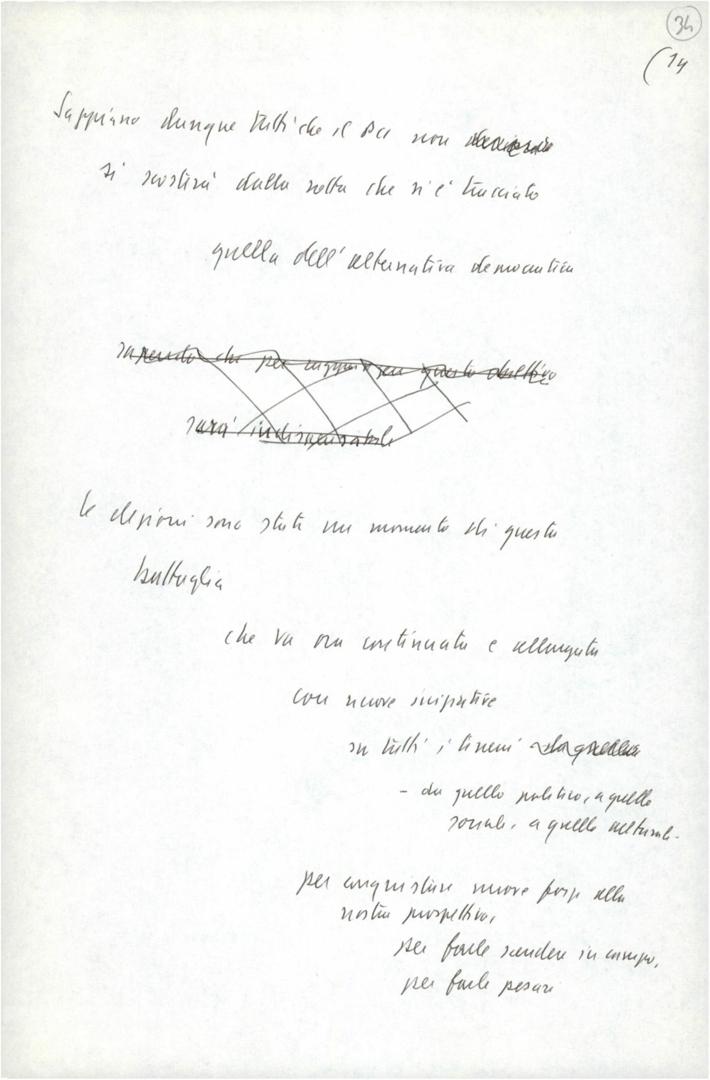 34
(14
Sappiano dunque tutti che il PCI non
si scosterà dalla rotta che si è tracciato
quella dell'alternativa democratica
sapendo che per raggiungere questo obiettivo
sarà indispensabile
le elezioni sono state un momento di questa
battaglia
che va ora continuata e allargata
con nuove iniziative
su tutti i terreni da quello
- da quello politico, a quello
sociale, a quello culturale.
per conquistare nuove forze alla
nostra prospettiva,
per farle scendere in campo,
per farle pesare